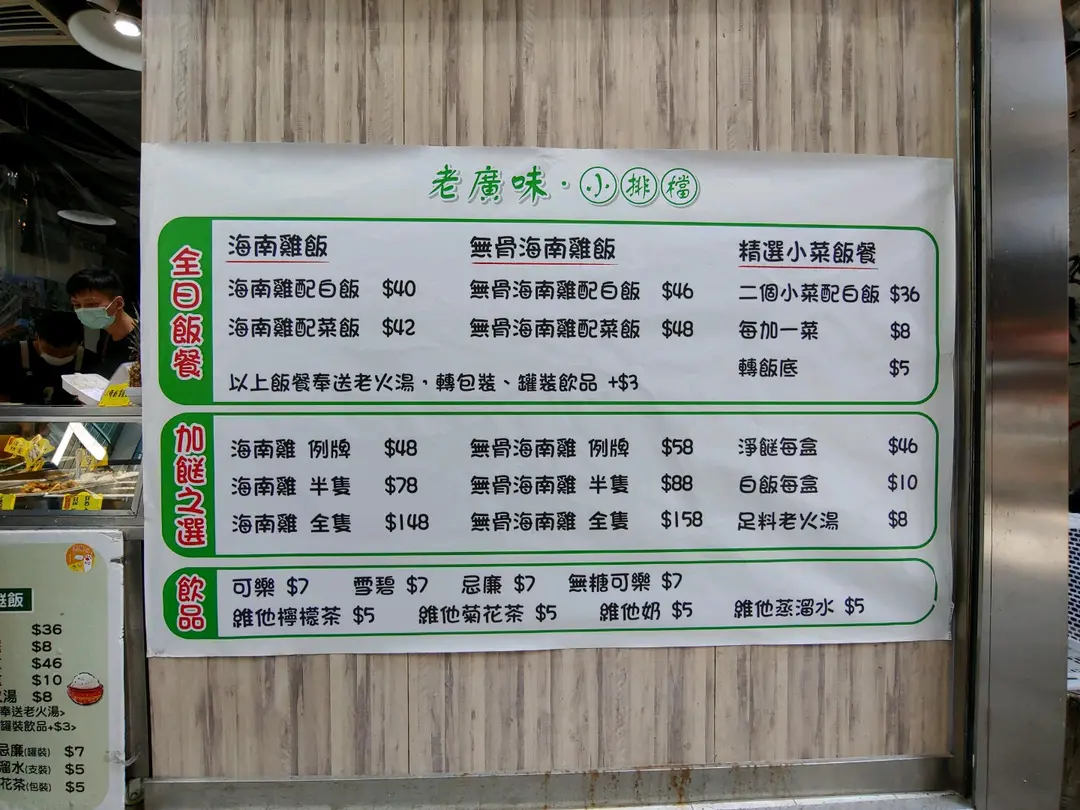 老廣味·小排檔
全日飯餐
海南雞飯 無骨海南雞飯 精選小菜飯餐
海南雞配白飯 $40 無骨海南雞配白飯 $46 二個小菜配白飯 $36
海南雞配菜飯 $42 無骨海南雞配菜飯 $48 每加一菜 $8
轉飯底 $5
以上飯餐奉送老火湯，轉包裝、罐裝飲品 +$3
加餸之選
海南雞 例牌 $48 無骨海南雞 例牌 $58 淨餸每盒 $46
海南雞 半隻 $78 無骨海南雞 半隻 $88 白飯每盒 $10
海南雞 全隻 $148 無骨海南雞 全隻 $158 足料老火湯 $8
飲品
可樂 $7 雪碧 $7 忌廉 $7 無糖可樂 $7
維他檸檬茶 $5 維他菊花茶 $5 維他奶 $5 維他蒸溜水 $5
餸飯
$36
$8
$46
$10
湯 $8
奉送老火湯>
罐裝飲品+$3>
忌廉(罐裝) $7
溜水(支裝) $5
花茶(包裝) $5